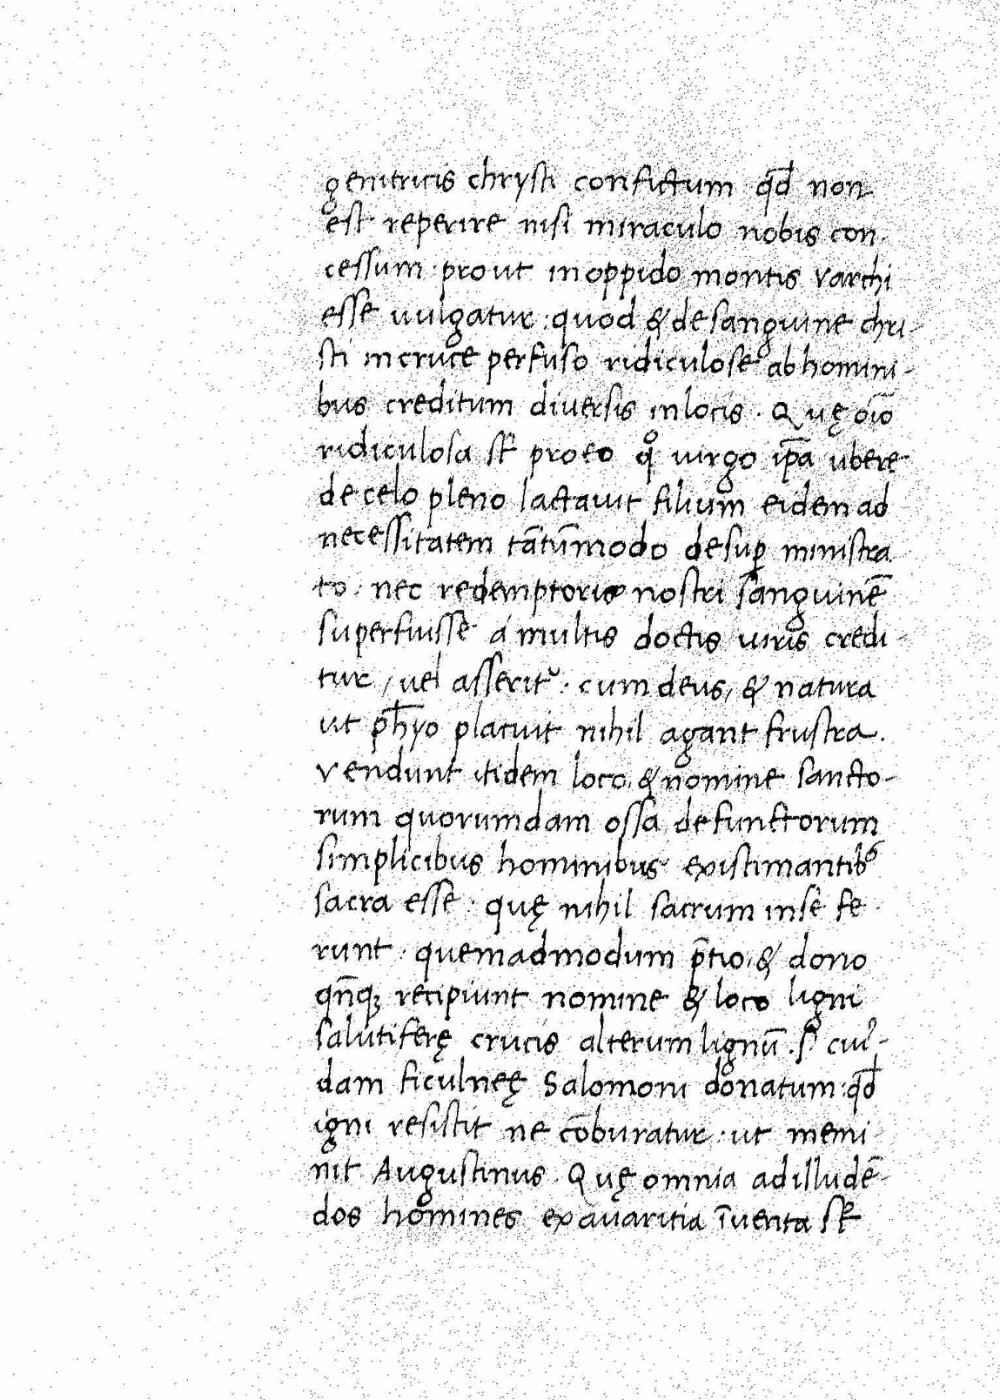 genitricis chrysti confictum qd̄ non
est reperire nisi miraculo nobis con
cessum prout in oppido montis varchi
esse uulgatur: quod & de sanguine chri-
sti in cruce perfuso ridiculose ab homini-
bus creditum diuersis in locis. Quę oīo
ridiculosa st̄ pro eo qͦ uirgo ip̄a ubere
de celo pleno lactauit filium eidem ad
necessitatem tātūmodo desuꝑ ministra
to. nec redemptoris nostri sanguinē
superfuisse a multis doctis uiris credi-
tur / uel asseritᷣ. cum deus, & natura
ut ph̄yo placuit nihil agant frustra.
vendunt itidem loco, & nomine sancto-
rum quorumdam ossa defunctorum
simplicibus hominibus existimantibꝰ
sacra esse: quę nihil sacrum in se fe
runt. quemadmodum p̄tio, & dono
qn̄qꝫ recipiunt nomine & loco ligni
salutiferę crucis alterum lignū. s͛ cui᾽-
dam ficulneę Salomoni donatum: qd̄
igni resistit ne cōburatur. ut memi
nit Augustinus. Quę omnia ad illudē-
dos homines ex auaritia īuenta st̄